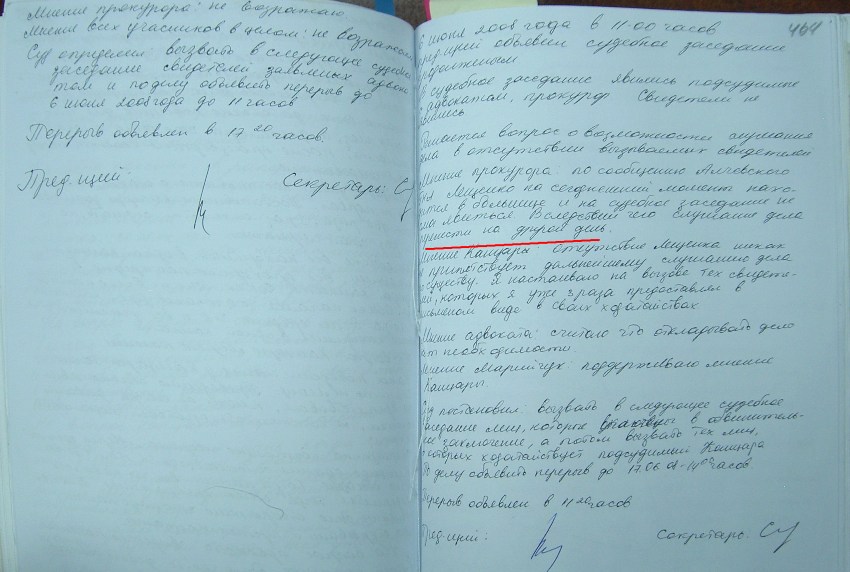 Мнение прокурора: не возражаю
Мнения всех участников в делом: не возражаем
Суд определил: вызвать в следующее судебн
заседание свидетелей заявлных адвока
том и по делу объявить перерыв до
6 июня 2008 года до 11 часов
Перерыв объявлен в 17 20 часов.
Пред-щий: Секретарь:
464
6 июня 2008 года в 11 00 часов
ред-щий объявил судебное заседание
родолженным
судебное заседание явились подсудимые
адвокатом, прокурор Свидетели не
явились
Решается вопрос о возможности слушания
дела в отсутствии вызываемых свидетелей
Мнение прокурора: по сообщению
Лещенко на сегодняшний момент нахо-
дится в больнице и на судебное заседание не
явиться Вследствии чего слушание дела
перенести на другой день.
Мнение Кащары: Отсутствие Лещенка никак
препятствует дальнейшему слушанию дела
существу. Я настаиваю на вызове тех свидете-
ей, которых я уже 3 раза предоставлял в
письменом виде в своих ходатайствах
Мнение адвоката: считаю что откладывать дело
нет необходимости.
Мнение Марийчук: поддерживаю мнение
Кащары.
Суд постановил: вызвать в следующее судебное
заседание лиц, которые в обвинитель-
ное заключение, а потом вызвать тех лиц,
о которых ходатайствует подсудимый Кащара
По делу объявить перерыв до 17.06.08 - 14 00 часов
Перерыв объявлен в 11 20 часов
Пред-щий: Секретарь: